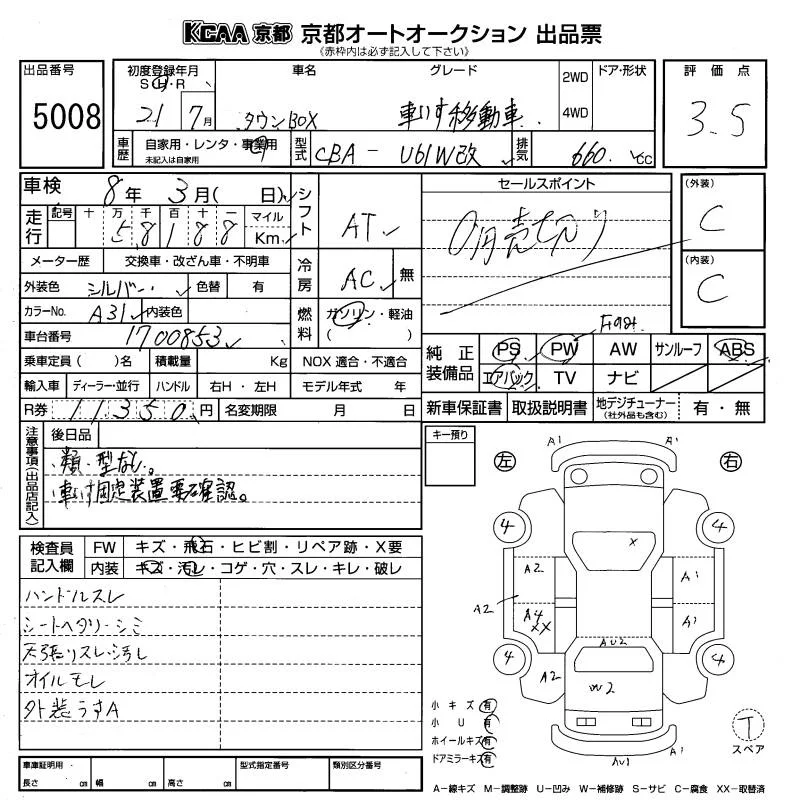 KCAA 京都 京都オートオークション 出品票
《赤枠内は必ず記入して下さい》
出品番号
5008
初度登録年月
S H・R
21 7月
車名
タウンBOX
グレード
車いす移動車
2WD
4WD
ドア・形状
評価点
3.5
車歴
自家用・レンタ・事業用
未記入は自家用
型式
CBA- U61W改
排気
660 cc
車検
8年 3月( 日)
走行
記号 十 万 千 百 十 一
58188
マイル
Km
メーター歴
交換車・改ざん車・不明車
外装色
シルバー
色替
有
カラーNo.
A31
内装色
車台番号
1700853
シフト
AT
冷房
AC
無
燃料
ガソリン・軽油
( )
セールスポイント
0円売切り
(外装)
C
(内装)
C
乗車定員( )名
積載量
Kg
NOX 適合・不適合
輸入車
ディーラー・並行
ハンドル
右H・左H
モデル年式 年
R券
11350円
名変期限 月 日
純正装備品
PS
PW
AW
サンルーフ
ABS
エアバック
TV
ナビ
新車保証書
取扱説明書
地デジチューナー
(社外品も含む)
有・無
注意事項(出品店記入)
後日品
類・型なし。
車いす固定装置要確認。
キー預り
検査員記入欄
FW
キズ・飛石・ヒビ割・リペア跡・X要
内装
キズ・汚レ・コゲ・穴・スレ・キレ・破レ
ハンドルスレ
シートヘタリ・シミ
天張りスレ・汚レ
オイルモレ
外装うすA
左
右
A1
A1
4
4
X
A2
A1
A2
A4
XX
A1
AU2
4
4
A2
W2
小キズ 有
小U 有
ホイールキズ 有
ドアミラーキズ 有
AU1
A1
T
スペア
車庫証明用・
長さ cm
幅 cm
高さ cm
型式指定番号
類別区分番号
A-線キズ M-調整跡 U-凹み W-補修跡 S-サビ C-腐食 XX-取替済